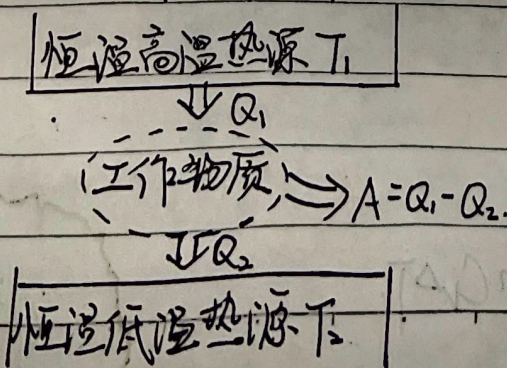 恒温高温热源 T₁
Q₁
工作物质
A=Q₁-Q₂.
Q₂
恒温低温热源 T₂